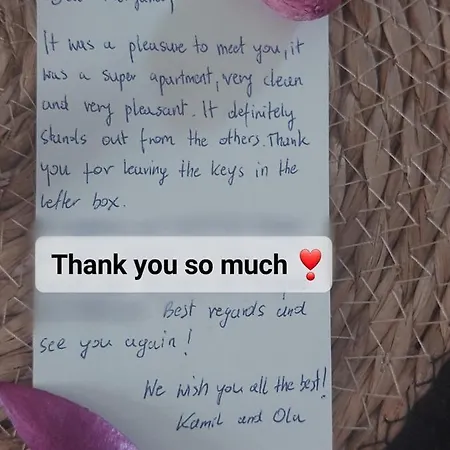 It was a pleasure to meet you, it
was a super apartment, very clean
and very pleasant. It definitely
stands out from the others. Thank
you for leaving the keys in the
letter box.
Thank you so much ❣️
Best regards and
see you again!
We wish you all the best!
Kamil and Ola